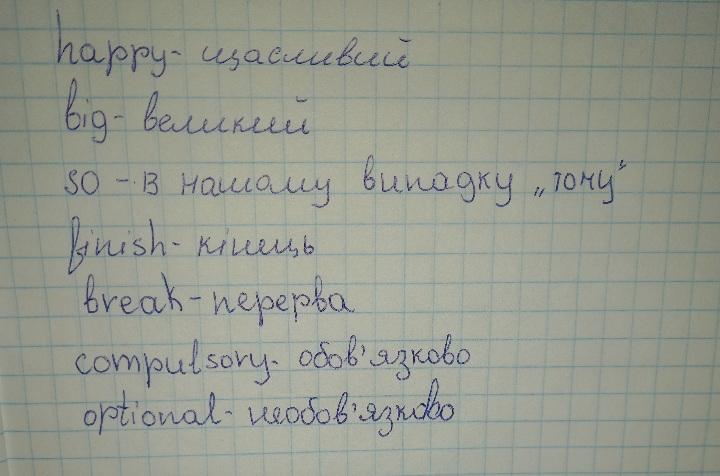 happy- щасливий
big- великий
so - в нашому випадку „тому“
finish- кінець
break- перерва
compulsory- обов'язково
optional- необов'язково